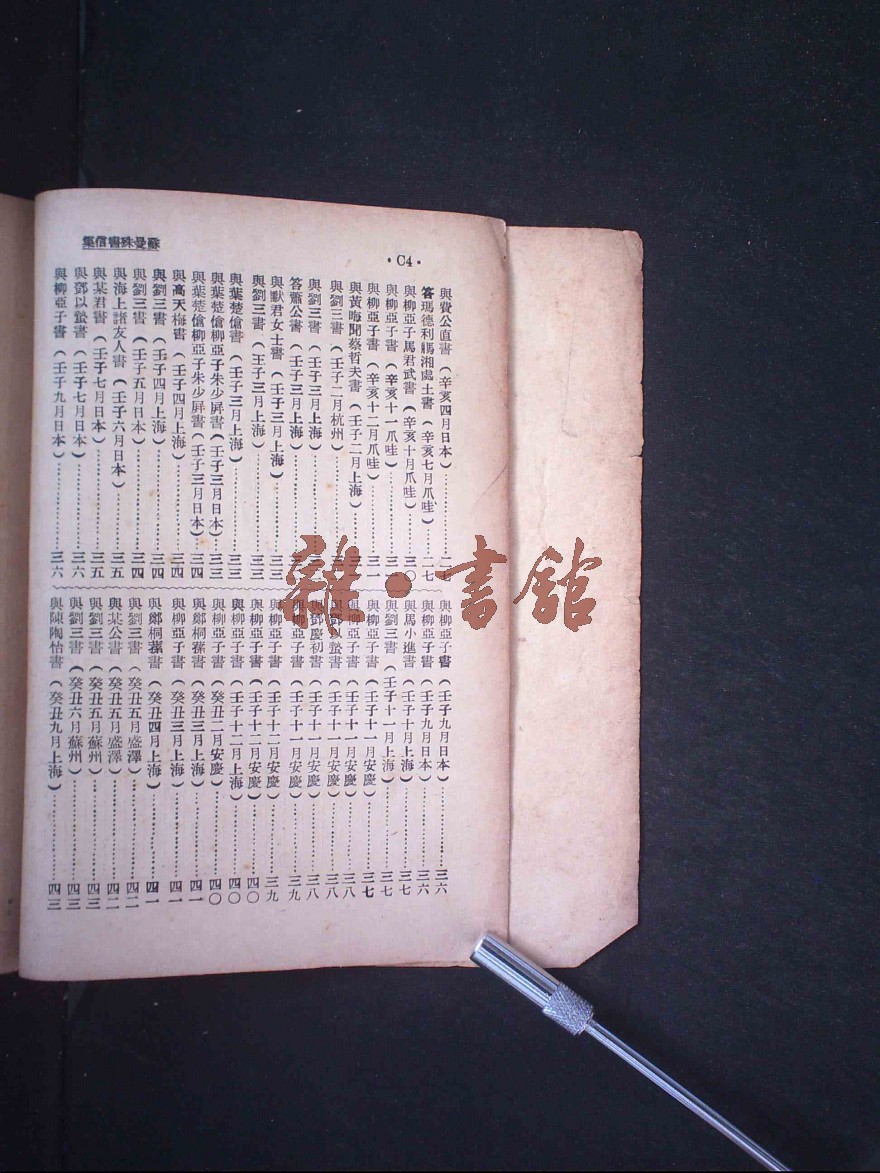 蘇曼殊書信集
·C4·
與費公直書(辛亥四月日本)……二七
答瑪德利馬湘處士書(辛亥七月爪哇)……二七
與柳亞子馬君武書(辛亥十月爪哇)……三〇
與柳亞子書(辛亥十一爪哇)……三一
與柳亞子書(辛亥十二月爪哇)……三一
與黃晦聞蔡哲夫書(壬子二月上海)……
與劉三書(壬子二月杭州)……
與劉三書(壬子三月上海)……
答蕭公書(壬子三月上海)……
與默君女士書(壬子三月上海)……三三
與劉三書(壬子三月上海)……三三
與葉楚傖書(壬子三月上海)……三三
與葉楚傖柳亞子朱少屏書(壬子三月日本)……三三
與葉楚傖柳亞子朱少屏書(壬子三月日本)……三四
與高天梅書(壬子四月上海)……三四
與劉三書(壬子四月上海)……三四
與劉三書(壬子五月日本)……三四
與海上諸友人書(壬子六月日本)……三五
與某君書(壬子七月日本)……三五
與鄧以蟄書(壬子七月日本)……三六
與柳亞子書(壬子九月日本)……三六
與柳亞子書(壬子九月日本)……三六
與柳亞子書(壬子九月日本)……三六
與馬小進書(壬子十月上海)……三七
與劉三書(壬子十一月上海)……三七
與柳亞子書(壬子十一月安慶)……三七
與柳亞子書(壬子十一月安慶)……三八
與鄧以蟄書(壬子十一月安慶)……三八
與鄧慶初書(壬子十一月安慶)……三八
與柳亞子書(壬子十一月安慶)……三九
與柳亞子書(壬子十二月安慶)……三九
與柳亞子書(壬子十二月安慶)……四〇
與柳亞子書(壬子十二月上海)……四〇
與柳亞子書(癸丑二月安慶)……四〇
與鄭桐蓀書(癸丑三月上海)……四一
與柳亞子書(癸丑三月上海)……四一
與鄭桐蓀書(癸丑四月上海)……四一
與劉三書(癸丑五月盛澤)……四二
與某公書(癸丑五月盛澤)……四二
與劉三書(癸丑五月蘇州)……四三
與劉三書(癸丑六月蘇州)……四三
與陳陶怡書(癸丑九月上海)……四三
雜·書館